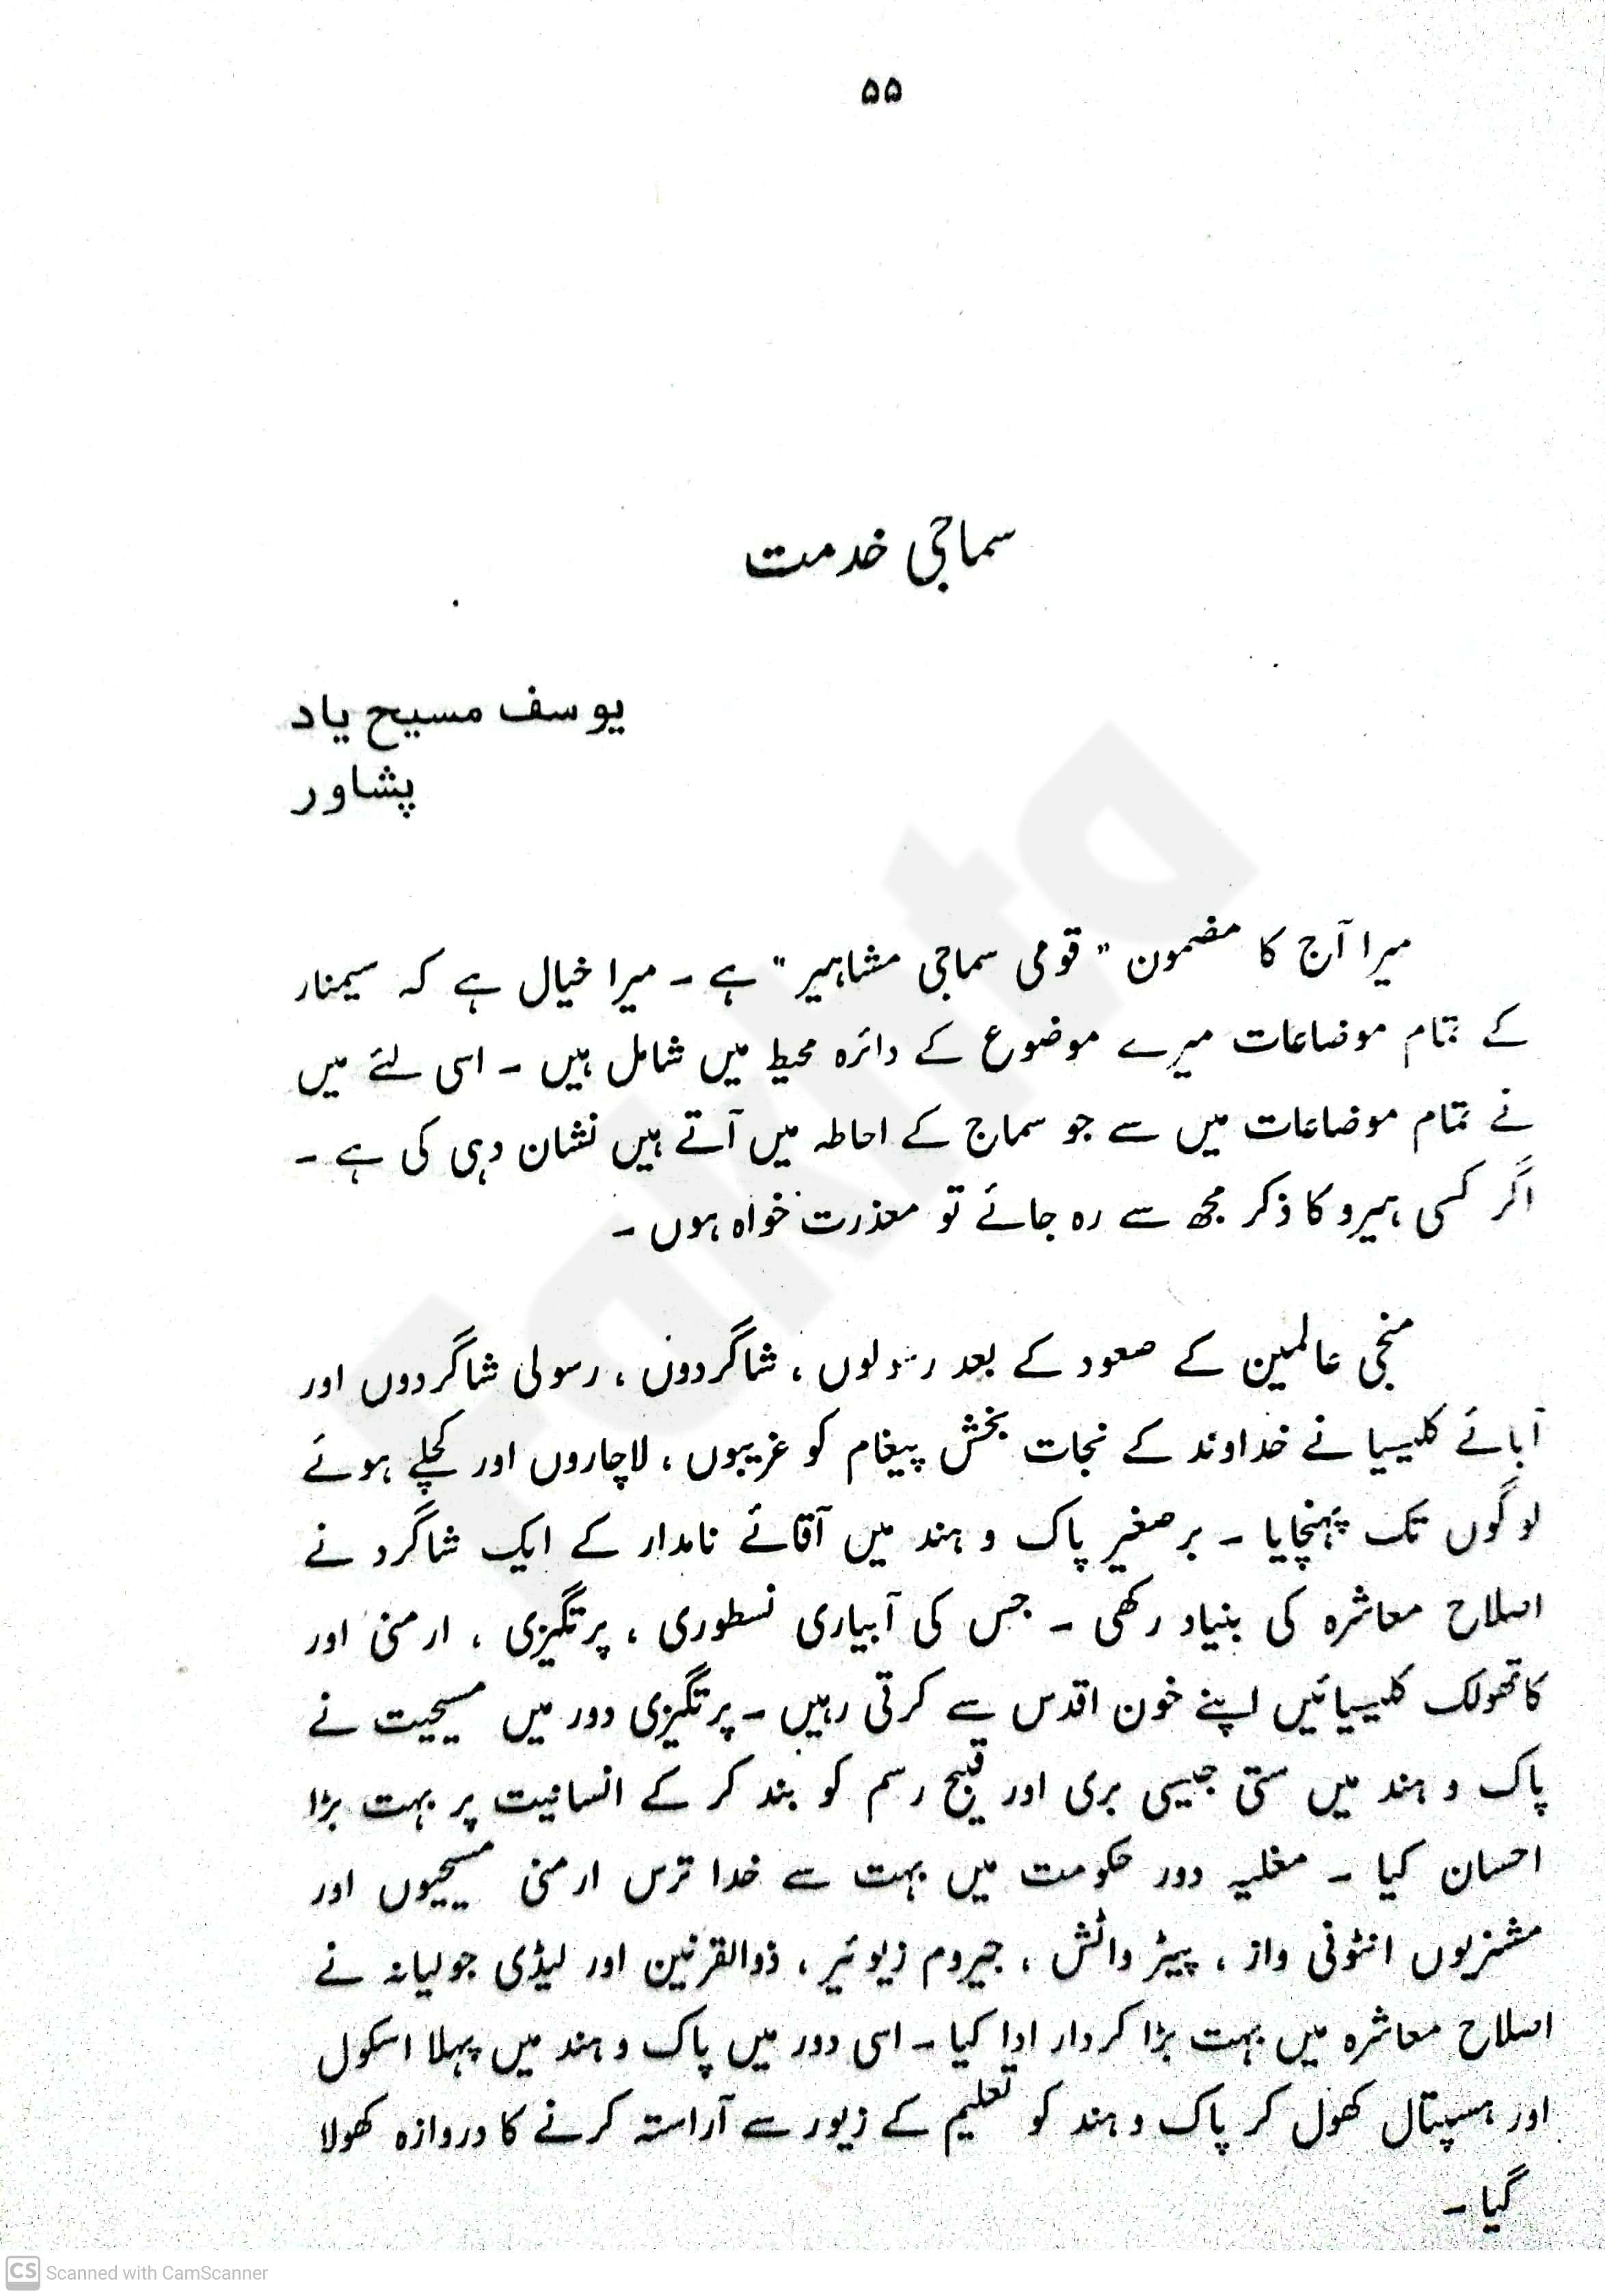 ۵۵
سماجی خدمت
یوسف مسیح یاد
پشاور
میرا آج کا مضمون " قومی سماجی مشاہیر " ہے ۔ میرا خیال ہے کہ سیمنار
کے تمام موضاعات میرے موضوع کے دائرہ محیط میں شامل ہیں ۔ اسی لئے میں
نے تمام موضاعات میں سے جو سماج کے احاطہ میں آتے ہیں نشان دہی کی ہے ۔
اگر کسی ہیرو کا ذکر مجھ سے رہ جائے تو معذرت خواہ ہوں ۔
منجی عالمین کے صعود کے بعد رسولوں ، شاگردوں ، رسولی شاگردوں اور
آبائے کلیسیا نے خداوند کے نجات بخش پیغام کو غریبوں ، لاچاروں اور کچلے ہوئے
لوگوں تک پہنچایا ۔ برصغیر پاک و ہند میں آقائے نامدار کے ایک شاگرد نے
اصلاح معاشرہ کی بنیاد رکھی ۔ جس کی آبیاری نسطوری ، پرتگیزی ، ارمنی اور
کاتھولک کلیسیائیں اپنے خون اقدس سے کرتی رہیں ۔ پرتگیزی دور میں مسیحیت نے
پاک و ہند میں ستی جیسی بری اور قبیح رسم کو بند کر کے انسانیت پر بہت بڑا
احسان کیا ۔ مغلیہ دور حکومت میں بہت سے خدا ترس ارمنی مسیحیوں اور
مشنریوں انٹونی واز ، پیٹر وائش ، جیروم زیوئیر ، ذوالقرنین اور لیڈی جولیانہ نے
اصلاح معاشرہ میں بہت بڑا کردار ادا کیا ۔ اسی دور میں پاک و ہند میں پہلا اسکول
اور ہسپتال کھول کر پاک و ہند کو تعلیم کے زیور سے آراستہ کرنے کا دروازہ کھولا
گیا ۔
Takhta
CS Scanned with CamScanner